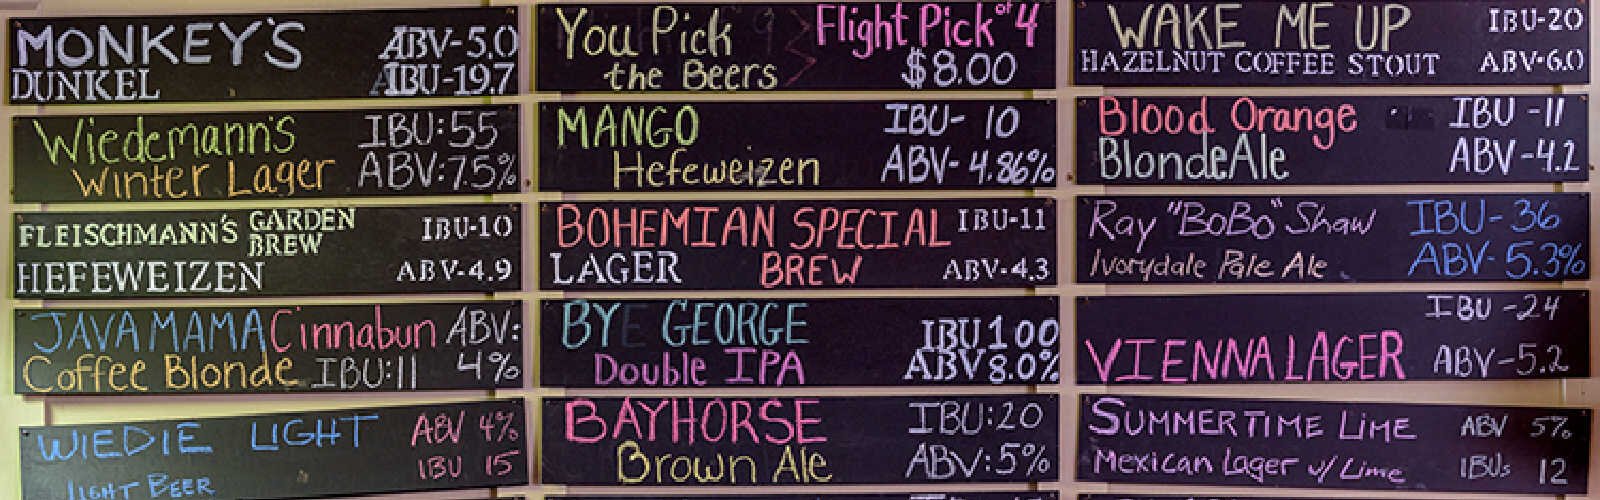 MONKEY'S ABV-5.0
DUNKEL IBU-19.7
Wiedemann's IBU:55
Winter Lager ABV:7.5%
FLEISCHMANN'S GARDEN BREW IBU-10
HEFEWEIZEN ABV-4.9
JAVA MAMA Cinnabun ABV:
Coffee Blonde IBU:11 4%
WIEDIE LIGHT ABV 4%
IBU 15
LIGHT BEER
You Pick Flight Pick of 4
the Beers $8.00
MANGO IBU- 10
Hefeweizen ABV- 4.86%
BOHEMIAN SPECIAL IBU-11
LAGER BREW ABV-4.3
BY GEORGE IBU 100
Double IPA ABV 8.0%
BAYHORSE IBU:20
Brown Ale ABV:5%
WAKE ME UP IBU-20
HAZELNUT COFFEE STOUT ABV-6.0
Blood Orange IBU -11
Blonde Ale ABV -4.2
Ray "BoBo" Shaw IBU- 36
Ivorydale Pale Ale ABV- 5.3%
IBU -24
VIENNA LAGER ABV-5.2
SUMMERTIME LIME ABV 5%
Mexican Lager w/ Lime IBUs 12